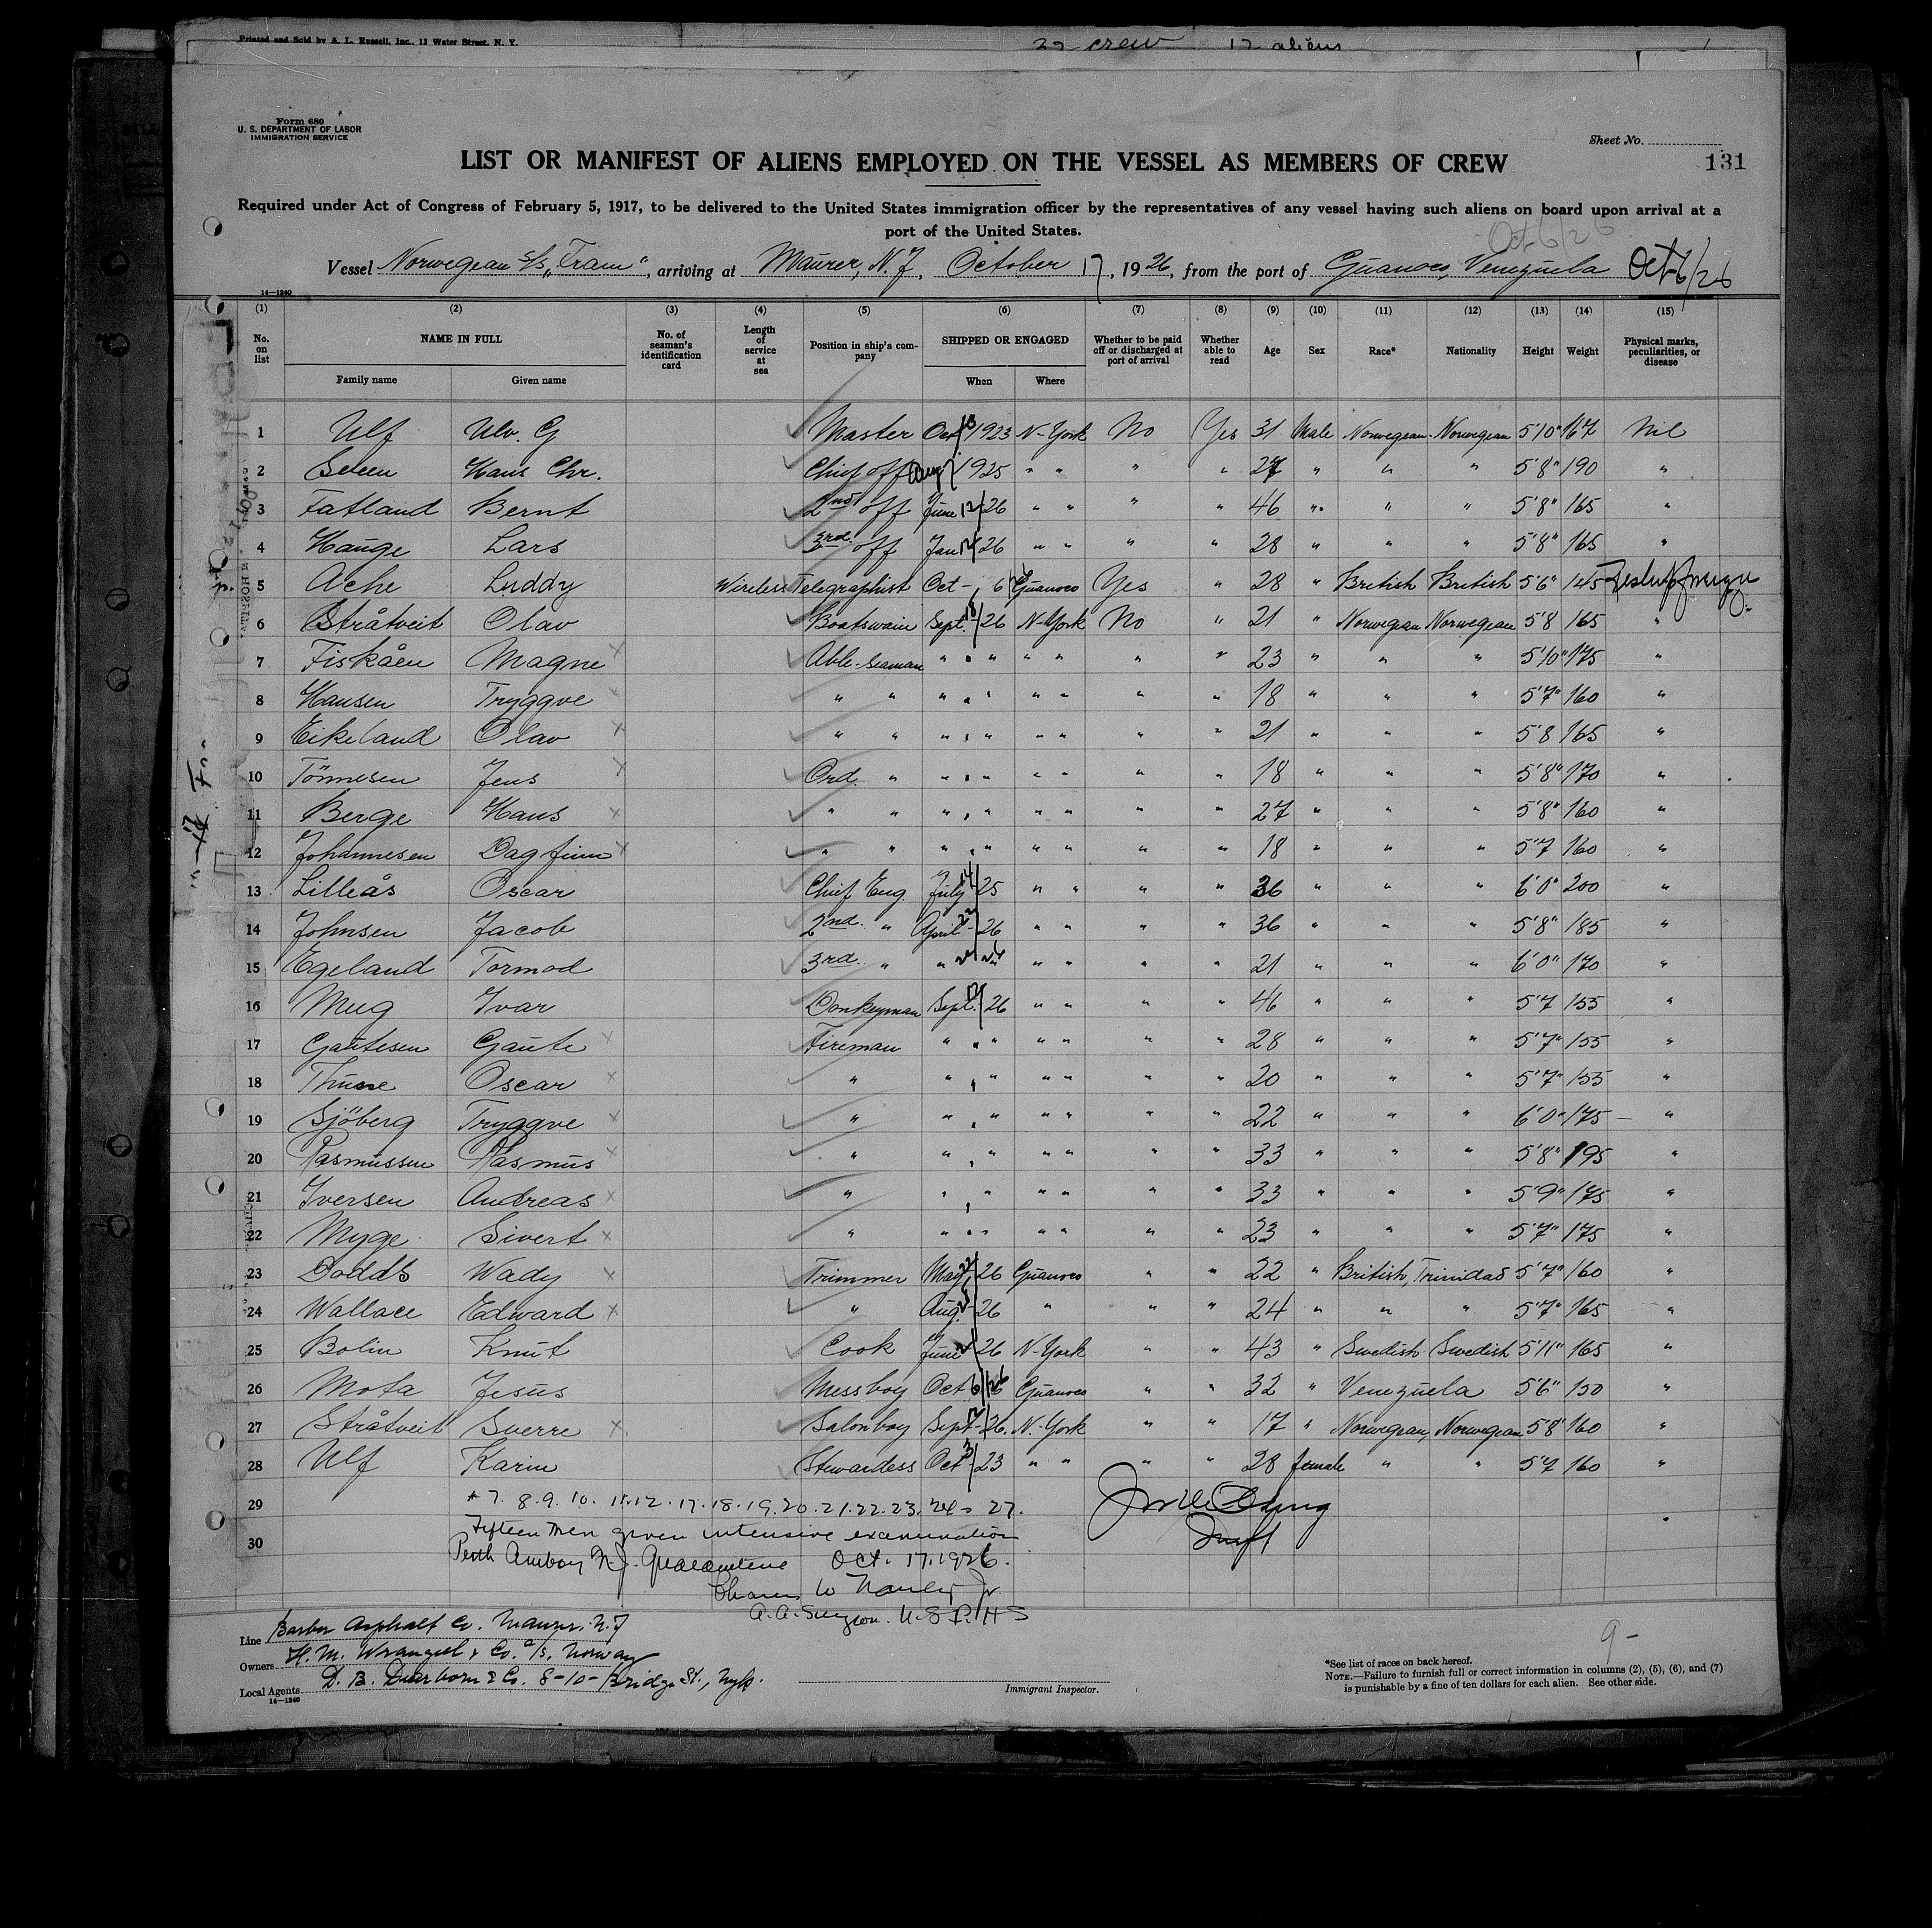 Printed and Sold by A. L. Russell, Inc., 13 Water Street, N. Y.
crew 12 aliens
Form 680
U. S. DEPARTMENT OF LABOR
IMMIGRATION SERVICE
Sheet No.
131
LIST OR MANIFEST OF ALIENS EMPLOYED ON THE VESSEL AS MEMBERS OF CREW
Required under Act of Congress of February 5, 1917, to be delivered to the United States immigration officer by the representatives of any vessel having such aliens on board upon arrival at a
port of the United States.
Oct 6/26
Vessel Norwegean S/S "Fram", arriving at Maurer, N.J., October 17, 1926, from the port of Guanoco, Venezuela Oct 6/26
14—1240
(1) (2) (3) (4) (5) (6) (7) (8) (9) (10) (11) (12) (13) (14) (15)
No. on list NAME IN FULL No. of seaman's identification card Length of service at sea Position in ship's company SHIPPED OR ENGAGED Whether to be paid off or discharged at port of arrival Whether able to read Age Sex Race* Nationality Height Weight Physical marks, peculiarities, or disease
Family name Given name When Where
1 Ulf Ulv. G Master Oct 1923 N-York No Yes 31 Male Norwegean Norwegean 5'10" 167 Nil
2 Hans Chr. Chief off Aug 1925 " " " " 27 " " " 5'8" 190 "
3 Fatland Bernt 2nd off June 12/26 " " " " 46 " " " 5'8" 165 "
4 Hauge Lars 3rd off Jan 26 " " " " 28 " " " 5'8" 165 "
5 Ache Luddy Wireless Telegraphist Oct - 6 Guanoco Yes " 28 " British British 5'6" 145
6 Stråtveit Olav Boatswain Sept. 18/26 N-York No " 21 " Norwegian Norwegean 5'8 165 "
7 Fiskåen Magne x Able-Seaman " " " " " " " 23 " " " 5'10" 175 "
8 Hansen Tryggve x " " " " " " " " " 18 " " " 5'7" 160 "
9 Eikeland Olav x " " " " " " " " " 21 " " " 5'8 165 "
10 Tönnesen Jens x Ord. " " " " " " " " 18 " " " 5'8" 170 "
11 Berge Hans x " " " " " " " " " 27 " " " 5'8" 160 "
12 Johannesen Dagfinn x " " " " " " " " " 18 " " " 5'7 160 "
13 Lilleås Oscar Chief Eng. July 14/25 " " " " 36 " " " 6'0" 200 "
14 Johnsen Jacob 2nd. " April 22/26 " " " " 36 " " " 5'8" 185 "
15 Egeland Tormod 3rd. " " " " " " " 21 " " " 6'0" 170 "
16 Mug Ivar Donkeyman Sept. 26 " " " " 46 " " " 5'7 155 "
17 Gautesen Gaute x Fireman " " " " " " " 28 " " " 5'7" 155 "
18 Oscar x " " " " " " " 20 " " " 5'7" 155 "
19 Sjöberg Tryggve x " " " " " " " 22 " " " 6'0" 175 "
20 Rasmussen Rasmus x " " " " " " " 33 " " " 5'8" 195 "
21 Iversen Andreas x " " " " " " " 33 " " " 5'9" 175 "
22 Myge Sivert x " " " " " " " 23 " " " 5'7" 175 "
23 Dodds Wady x Trimmer May 26 Guanoco " " 22 " British, Trinidad 5'7" 160 "
24 Wallace Edward x " Aug. 26 " " " 24 " " " 5'7" 165 "
25 Bolin Knut Cook June 26 N-York " " 43 " Swedish Swedish 5'11" 165 "
26 Mota Jesus Messboy Oct 6/26 Guanoco " " 32 " Venezuela 5'6" 150 "
27 Stråtveit Sverre x Salonboy Sept 26. N.-York " " 17 " Norwegean, Norwegean 5'8" 160 "
28 Ulf Karin Stewardess Oct 3/23 " " " " 28 female " " 5'7 160 "
29 * 7. 8. 9. 10. 11. 12. 17. 18. 19. 20. 21. 22. 23. 24 27.
Fifteen men given intensive examination
30 Perth Amboy N.J. Quarantine Oct. 17. 1926.
A. A. Surgeon. U.S.P.H.S
Line Barber Asphalt Co. Maurer. N.J
Owners H. M. Wrangell & Co. A/S, Norway
Local Agents D. B. Dearborn & Co. 8-10- Bridge St., Nyk.
14—1240
Immigrant Inspector.
9-
*See list of races on back hereof.
NOTE.—Failure to furnish full or correct information in columns (2), (5), (6), and (7)
is punishable by a fine of ten dollars for each alien. See other side.